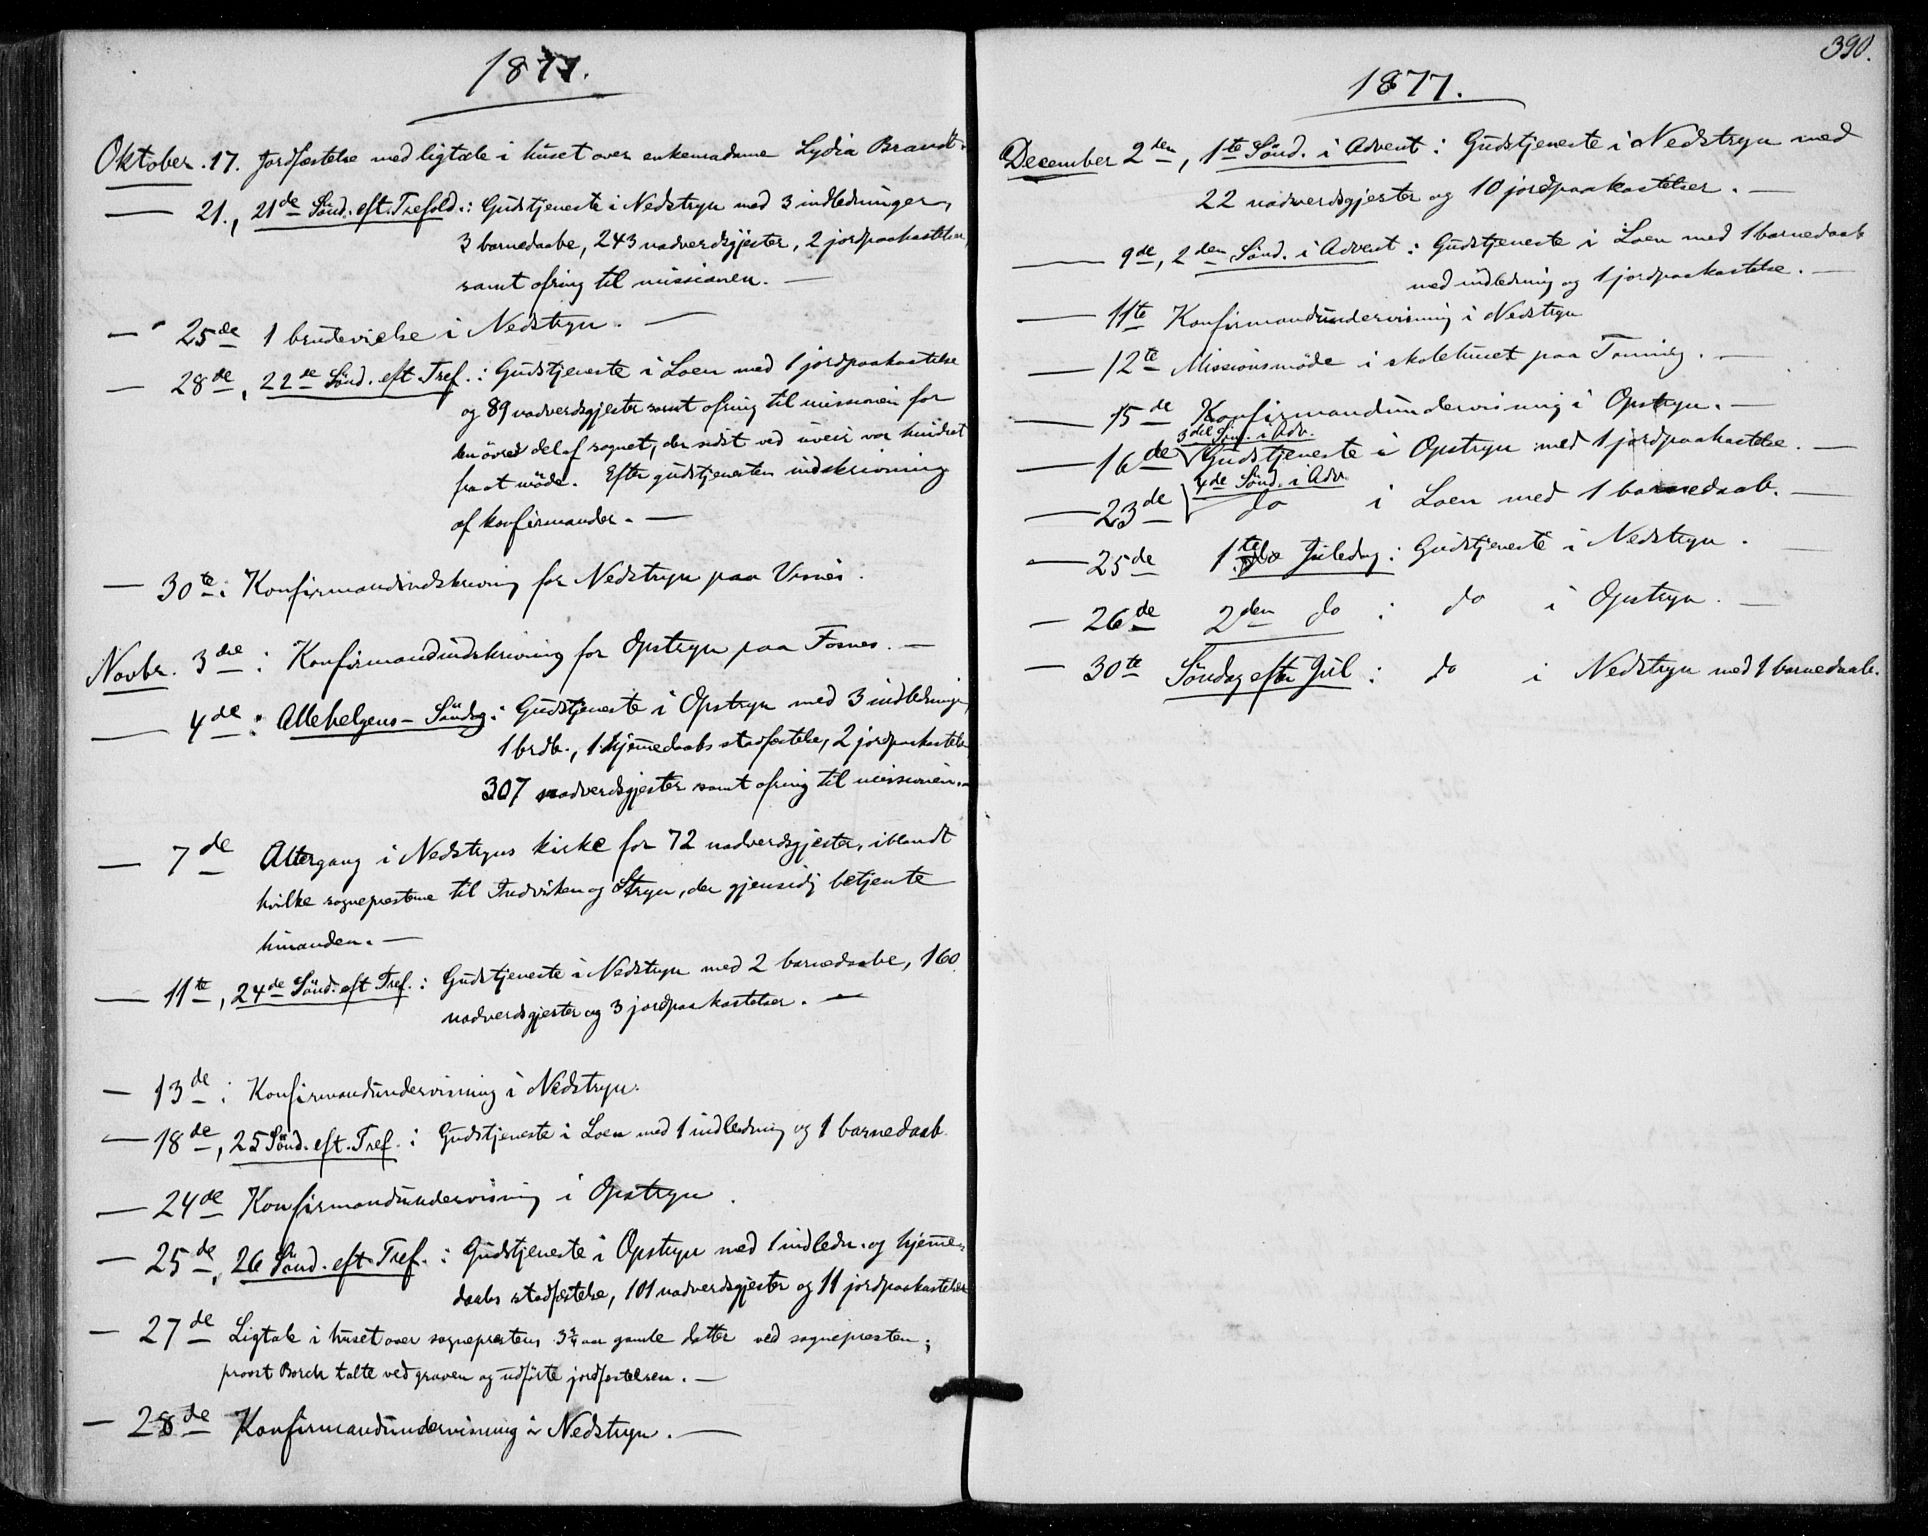 1877.
Oktober. 17. Jordfæstelse med ligtale i huset over enkemadame Lydia Brandt.
— 21., 21de Sönd. eft. Trefold.: Gudstjeneste i Nedstryn med 3 indledninger,
3 barnedaabe, 243 nadverdsgjester, 2 jordpaakastelser,
samt ofring til missionen. —
— 25de 1 brudevielse i Nedstryn. —
— 28de, 22de Sönd. eft. Tref.: Gudstjeneste i Loen med 1 jordpaakastelse
og 89 nadverdsgjester samt ofring til missionen for
den övre del af sognet, der sidst ved uveir var hindret
fra at möde. Efter gudstjenesten indskrivning
af konfirmander. —
— 30te: Konfirmandindskrivning for Nedstryn paa Visnes.
Novbr. 3die: Konfirmandindskrivning for Opstryn paa Fosnes. —
— 4de: Allehelgens-Söndag: Gudstjeneste i Opstryn med 3 indledninger,
1 brdb., 1 hjemmedaabs stadfæstelse, 2 jordpaakastelser
307 nadverdsgjester samt ofring til missionen. —
— 7de Altergang i Nedstryns kirke for 72 nadverdsgjester, iblandt
hvilke sogneprestene til Indviken og Stryn, der gjensidig betjente
hinanden. —
— 11te, 24de Sönd. eft Tref.: Gudstjeneste i Nedstryn med 2 barnedaabe, 160
nadverdsgjester og 3 jordpaakastelser. —
— 13de: Konfirmandundervisning i Nedstryn.
— 18de, 25 Sönd. eft. Tref.: Gudstjeneste i Loen med 1 indledning og 1 barnedaab.
— 24de Konfirmandundervisning i Opstryn.
— 25de, 26 Sönd. eft Tref.: Gudstjeneste i Opstryn med 1 indledn. og hjemme-
daabs stadfæstelse, 101 nadverdsgjester og 11 jordpaakastelser
— 27de Ligtale i huset over sogneprestens 3¾ aar gamle datter ved sognepresten;
provst Borch talte ved graven og udförte jordfæstelsen. —
— 28de Konfirmandundervisning i Nedstryn. —
390.
1877.
December 2den, 1ste Sönd. i Advent: Gudstjeneste i Nedstryn med
22 nadverdsgjester og 10 jordpaakastelser. —
— 9de, 2den Sönd. i Advent: Gudstjeneste i Loen med 1 barnedaab
med indledning og 1 jordpaakastelse. —
— 11te Konfirmandundervisning i Nedstryn
— 12te Missionsmöde i skolehuset paa Tonning. —
— 15de Konfirmandundervisning i Opstryn. —
3die Sön. i Adv.
— 16de Gudstjeneste i Opstryn med 1 jordpaakastelse. —
4de Sönd. i Adv.
— 23de do i Loen med 1 barnedaab. —
— 25de 1te Juledag: Gudstjeneste i Nedstryn. —
— 26de 2den do: do i Opstryn. —
— 30te Söndag efter Jul: do i Nedstryn med 1 barnedaab.